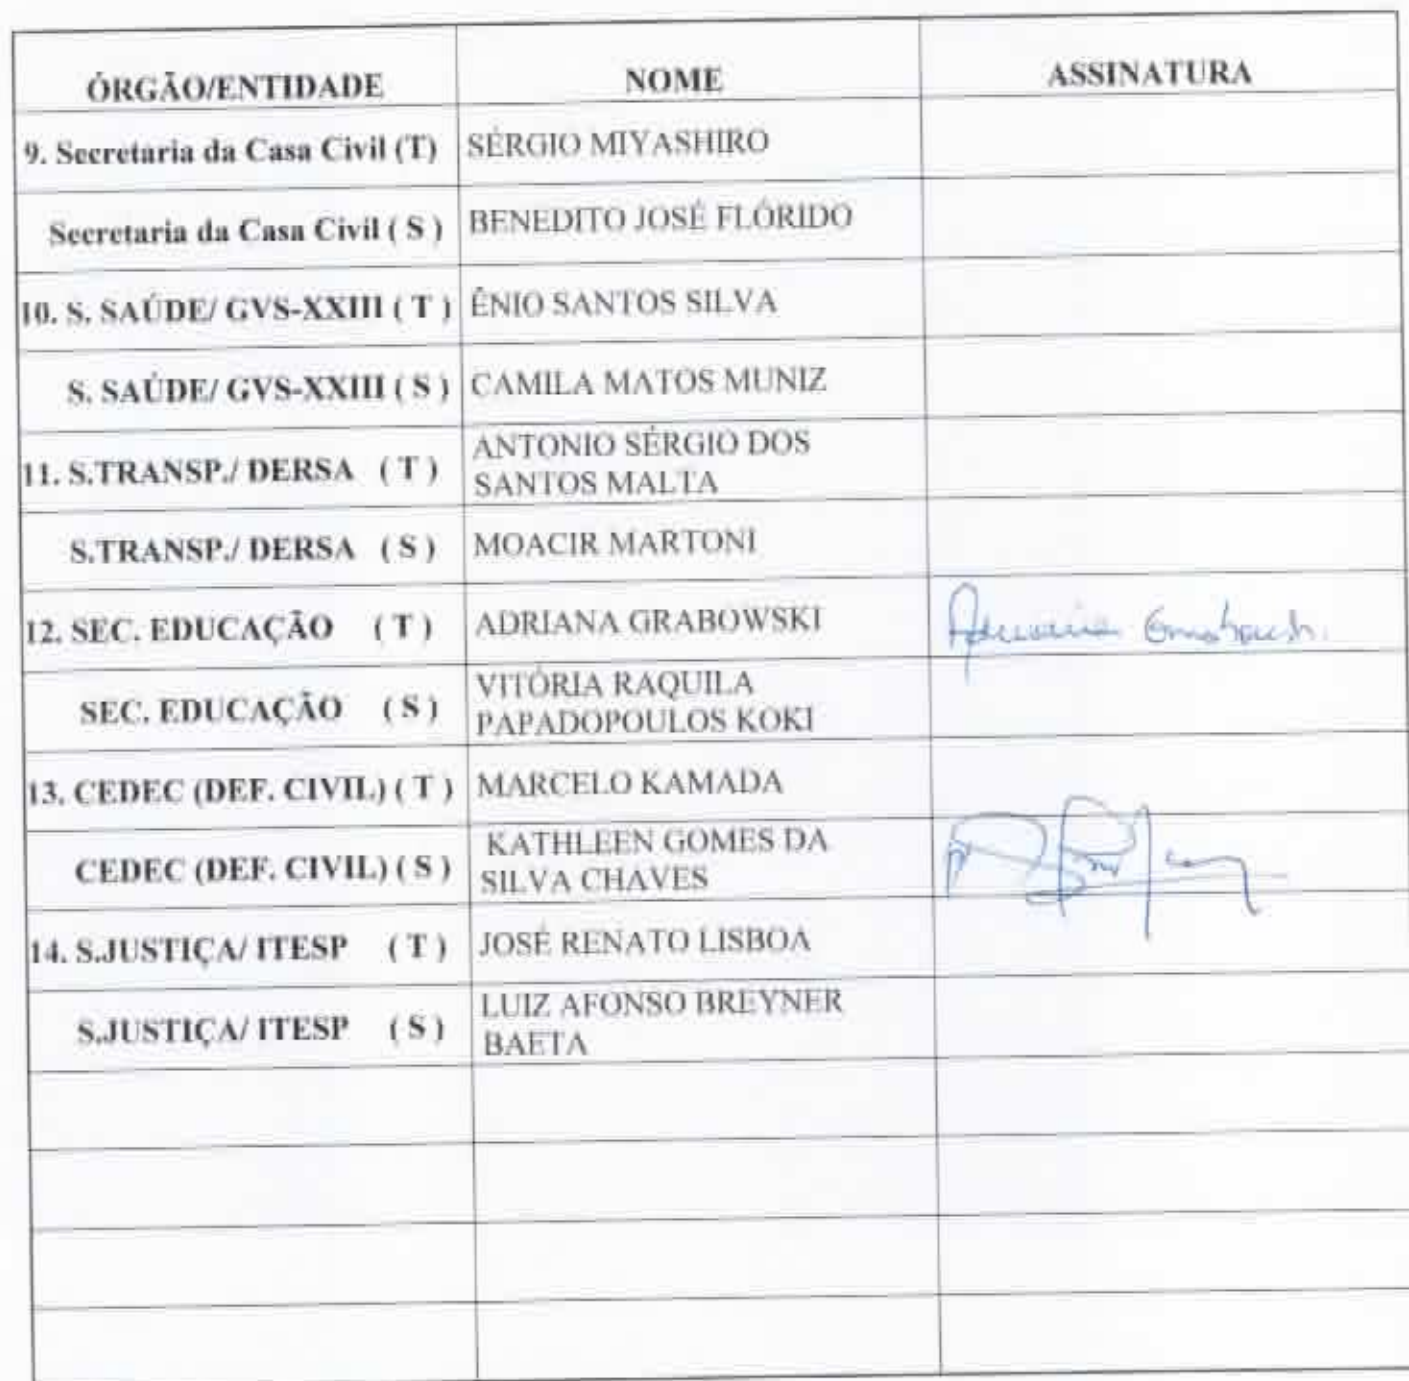 ÓRGÃO/ENTIDADE NOME ASSINATURA
9. Secretaria da Casa Civil (T) SÉRGIO MIYASHIRO
Secretaria da Casa Civil ( S ) BENEDITO JOSÉ FLÓRIDO
10. S. SAÚDE/ GVS-XXIII ( T ) ÊNIO SANTOS SILVA
S. SAÚDE/ GVS-XXIII ( S ) CAMILA MATOS MUNIZ
11. S.TRANSP./ DERSA ( T ) ANTONIO SÉRGIO DOS
SANTOS MALTA
S.TRANSP./ DERSA ( S ) MOACIR MARTONI
12. SEC. EDUCAÇÃO ( T ) ADRIANA GRABOWSKI
SEC. EDUCAÇÃO ( S ) VITÓRIA RAQUILA
PAPADOPOULOS KOKI
13. CEDEC (DEF. CIVIL) ( T ) MARCELO KAMADA
CEDEC (DEF. CIVIL) ( S ) KATHLEEN GOMES DA
SILVA CHAVES
14. S.JUSTIÇA/ ITESP ( T ) JOSÉ RENATO LISBOA
S.JUSTIÇA/ ITESP ( S ) LUIZ AFONSO BREYNER
BAETA